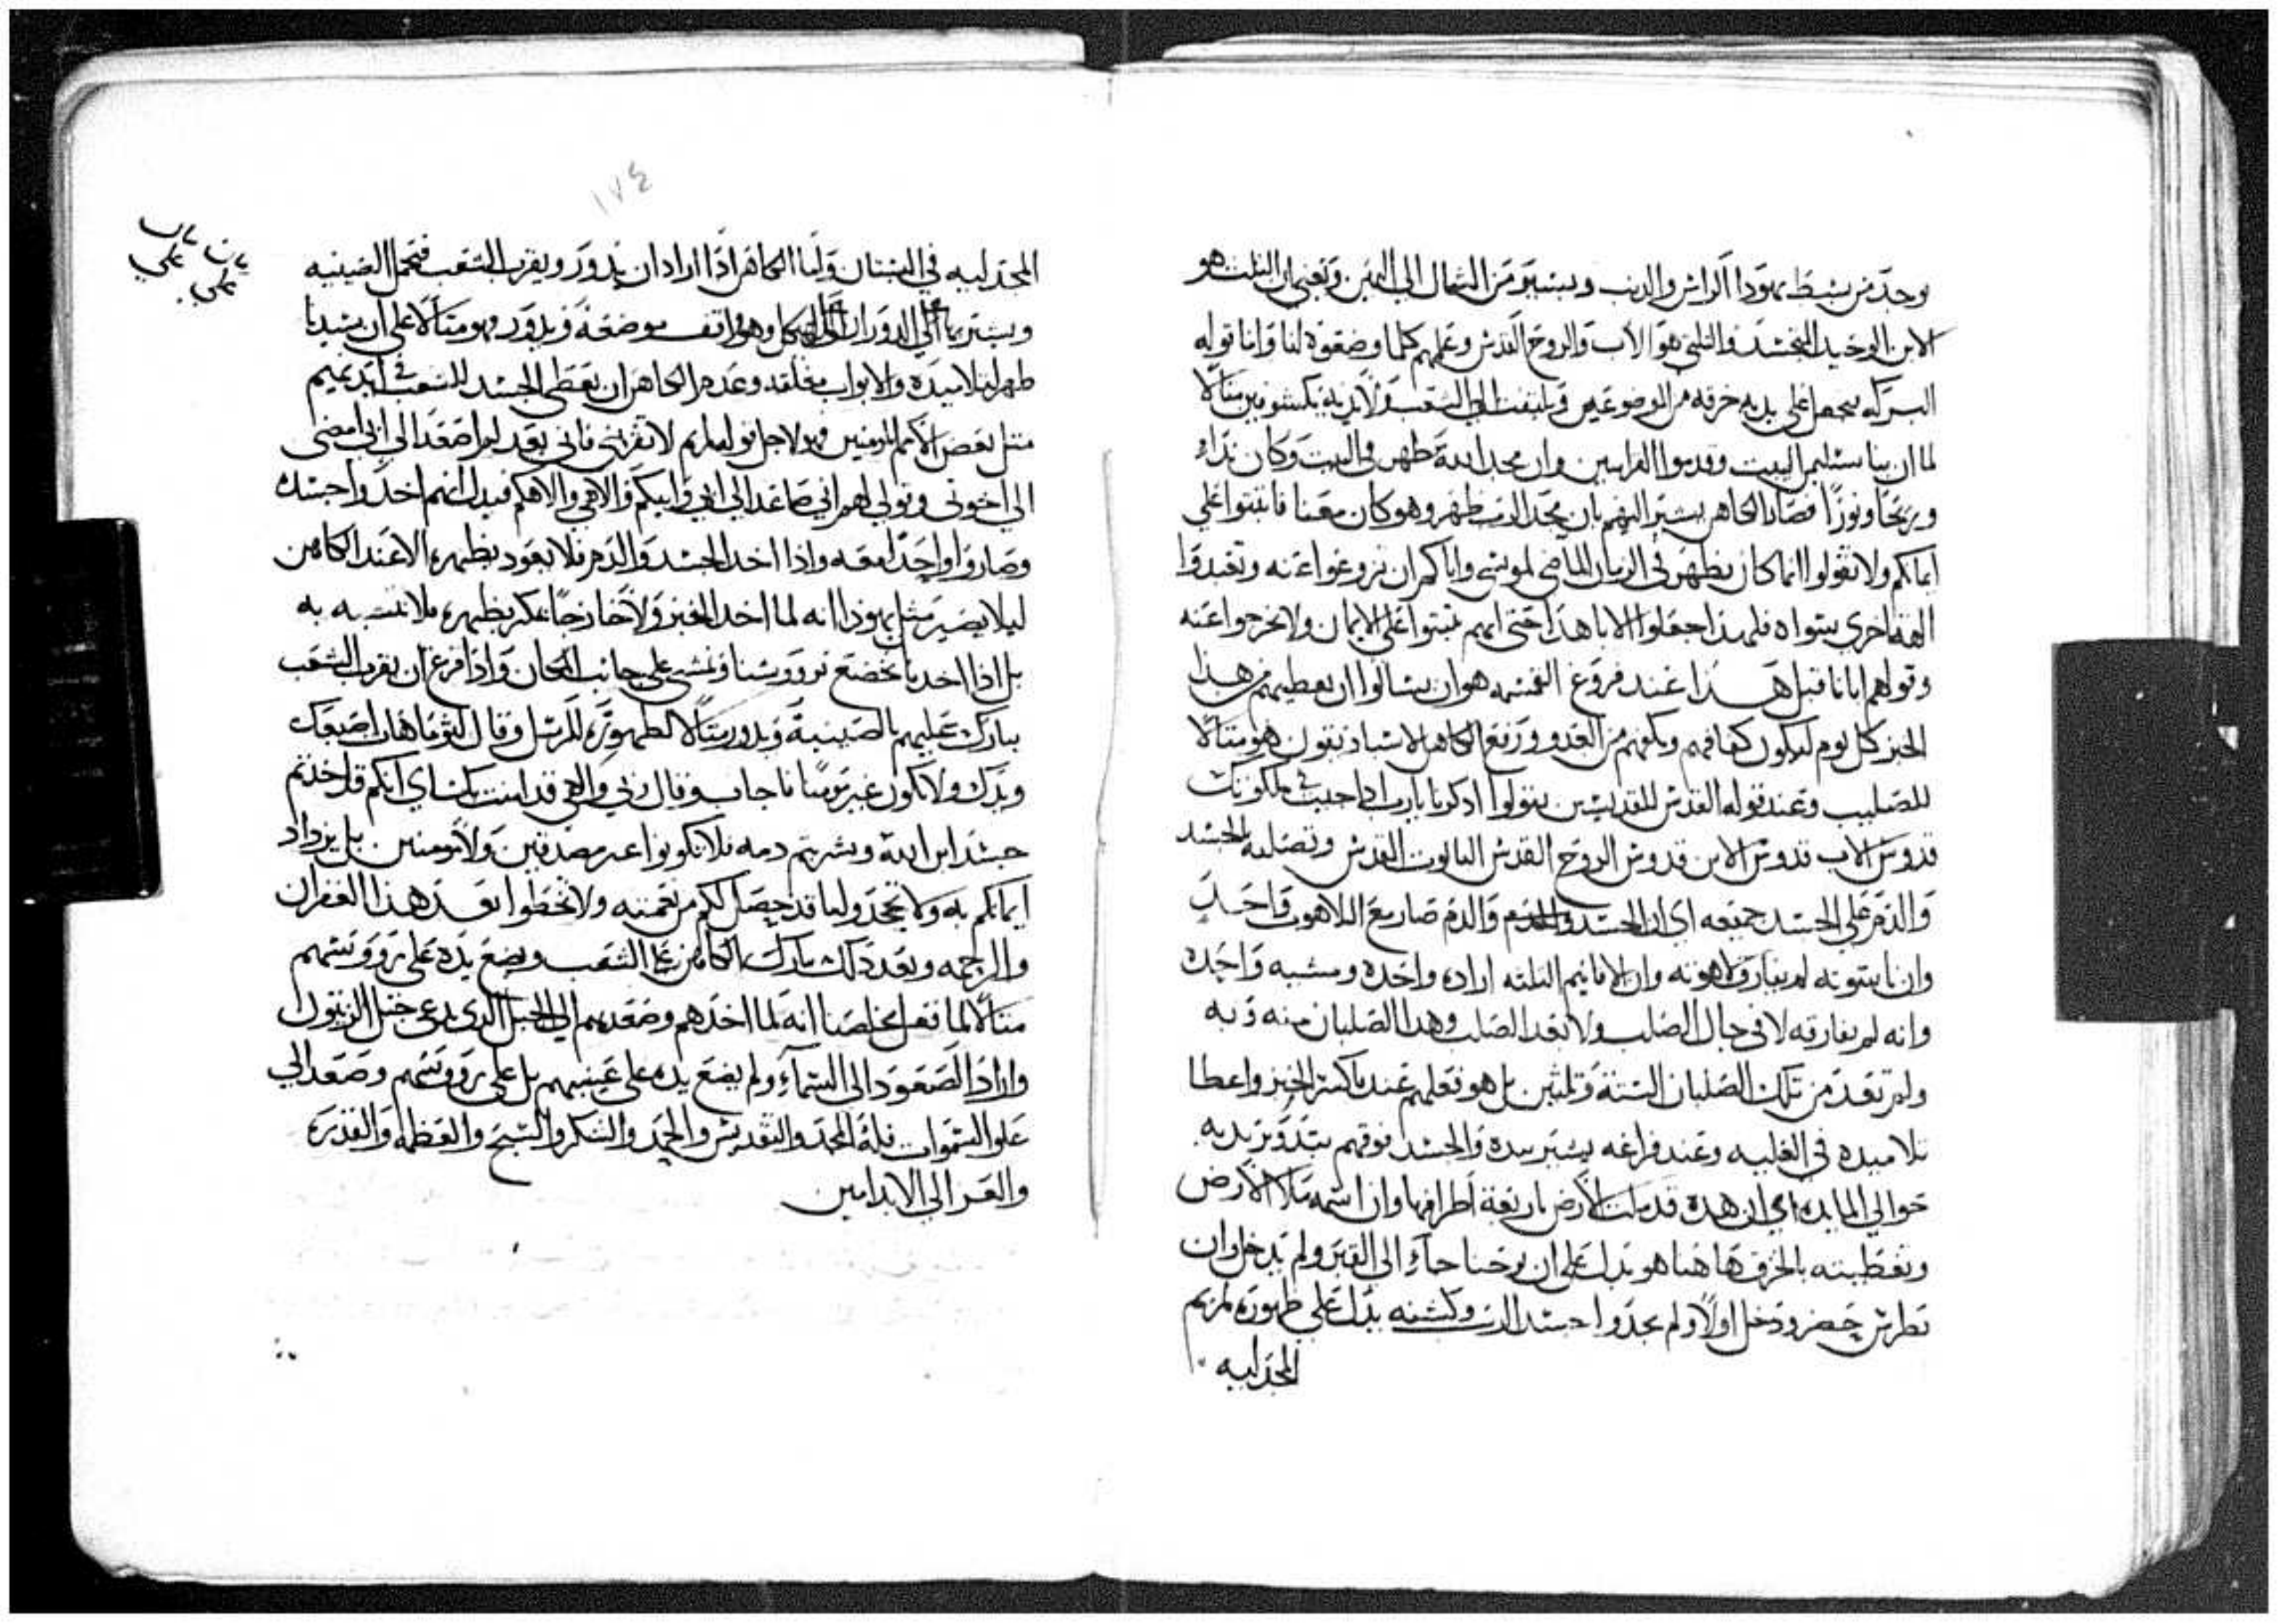 يوجد من سبط يهودا الراس والدنب ويستبق من الشمال الي اليمين ونعني ان الثلث هو
الابن الوحيد المتجسد والثلثي هو الاب والروح القدس وعلمهم كلما وضعوه لنا واما قوله
البركه يجعل علي يديه خرقه من الموضوعين ويلتفت الي الشعب ولا يديه مكشوفين مثالا
لما ان بنا سليم البيت وقدموا القرابين وان مجد الله ظهر في البيت وكان نداء
وريحا ونورا فصار الكاهن يشير اليهم بان مجد الرب ظهر وهو كان معنا فاثبتوا علي
ايمانكم ولا تقولوا انما كان يظهر في الزمان الماضي لموسي واياكم ان تزوغوا عنه وتعبدوا
الهه اخري سواه فلهذا جعلوا الابا هذا حتي انهم يثبتوا علي الايمان ولا يخرجوا عنه
وقولهم ابانا قبل هذا عند فروغ القسمه هو ان يسالوا ان يعطيهم من هذا
الخبز كل يوم ليكون كفافهم ويكفهم من العدو ورفع الكاهن الاسباديقون هو مثالا
للصليب وعند قوله القدس للقديسين يقولوا ادكرنا يارب اذا جيت في ملكوتك
قدوس الاب قدوس الابن قدوس الروح القدس الثالوث القدس وتصليبه الجسد
والدم علي الجسد جميعه اي ان الجسد والدم صار مع اللاهوت واحد
وان ناسوته لم يفارق لاهوته وان الاقانيم الثلثه اراده واحده ومشيه واحده
وانه لم يفارقه لا في حال الصلب ولا بعد الصلب وهدا الصلبان منه وبه
ولم تعد من تلك الصلبان الستة وتلتين بل هو تعلمهم عند ما كسر الخبز واعطا
تلاميده في العليه وعند فراغه يشير بيده والجسد فوقهم بتدوير يديه
حوالي المايده اي ان هده قد ملت الارض باربعة اطرافها وان اسمه ملا الارض
وتغطيته بالخرق هاهنا هو يدل علي ان يوحنا جاء الي القبر ولم يدخل وان
بطرس حضر ودخل اولا ولم يجدوا جسد الرب وكشفه يدل علي ظهوره لمريم
المجدليه
١٧٤
المجدليه في البستان واما الكاهن اذا اراد ان يدور ويقرب الشعب فتحمل الصينيه
ويستر بها علي الدوران علي الهيكل وهو واقف موضعه ويدور وهو مثالا علي ان سيدنا
ظهر لتلاميده والابواب مغلقه وعدم الكاهن ان يعطي الجسد للشعب في ايديهم
مثل بعض الامم المومنين وهو لاجل قوله لمريم لا تقربني فاني بعد لم اصعد الي ابي امضي
الي اخوتي وقولي لهم اني صاعد الي ابي وابيكم والاهي والاهكم فيدل انهم اخدوا جسده
وصاروا واحدا معه واذا اخد الجسد والدم فلا يعود بظهره الا عند الكاهن
ليلا يصير مثل يهودا انه لما اخد الخبز ولا خارجا مكر بظهره فلا نتشبه به
بل اذا اخدنا نخضع برووسنا ونمشي علي جانب المكان واذا فرغ ان يقرب الشعب
يبارك عليهم بالصينية ويدور مثالا لظهوره للرسل وقال لتوما هات اصبعك
ويدك ولا تكون غير مومنا فاجاب وقال ربي والاهي قد امنت بك اي انكم قد اخدتم
جسد ابن الله وشربتم دمه فلا تكونوا غير مصدقين ولا مومنين بل يزداد
ايمانكم به ولا تجحدوا لما قد حصل لكم من نعمته ولا تخطوا بعد هذا الغفران
والرحمه وبعد ذلك يبارك الكاهن علي الشعب ويضع يده علي رووسهم
مثالا لما فعل مخلصنا انه لما اخدهم وصعد بهم الي الجبل الدي يدعي جبل الزيتون
واراد الصعود الي السماء ولم يضع يده علي عينيهم بل علي رووسهم وصعد الي
علو السموات فله المجد والتقديس والحمد والشكر والتسبيح والعظمه والقدره
والعز الي الابد امين